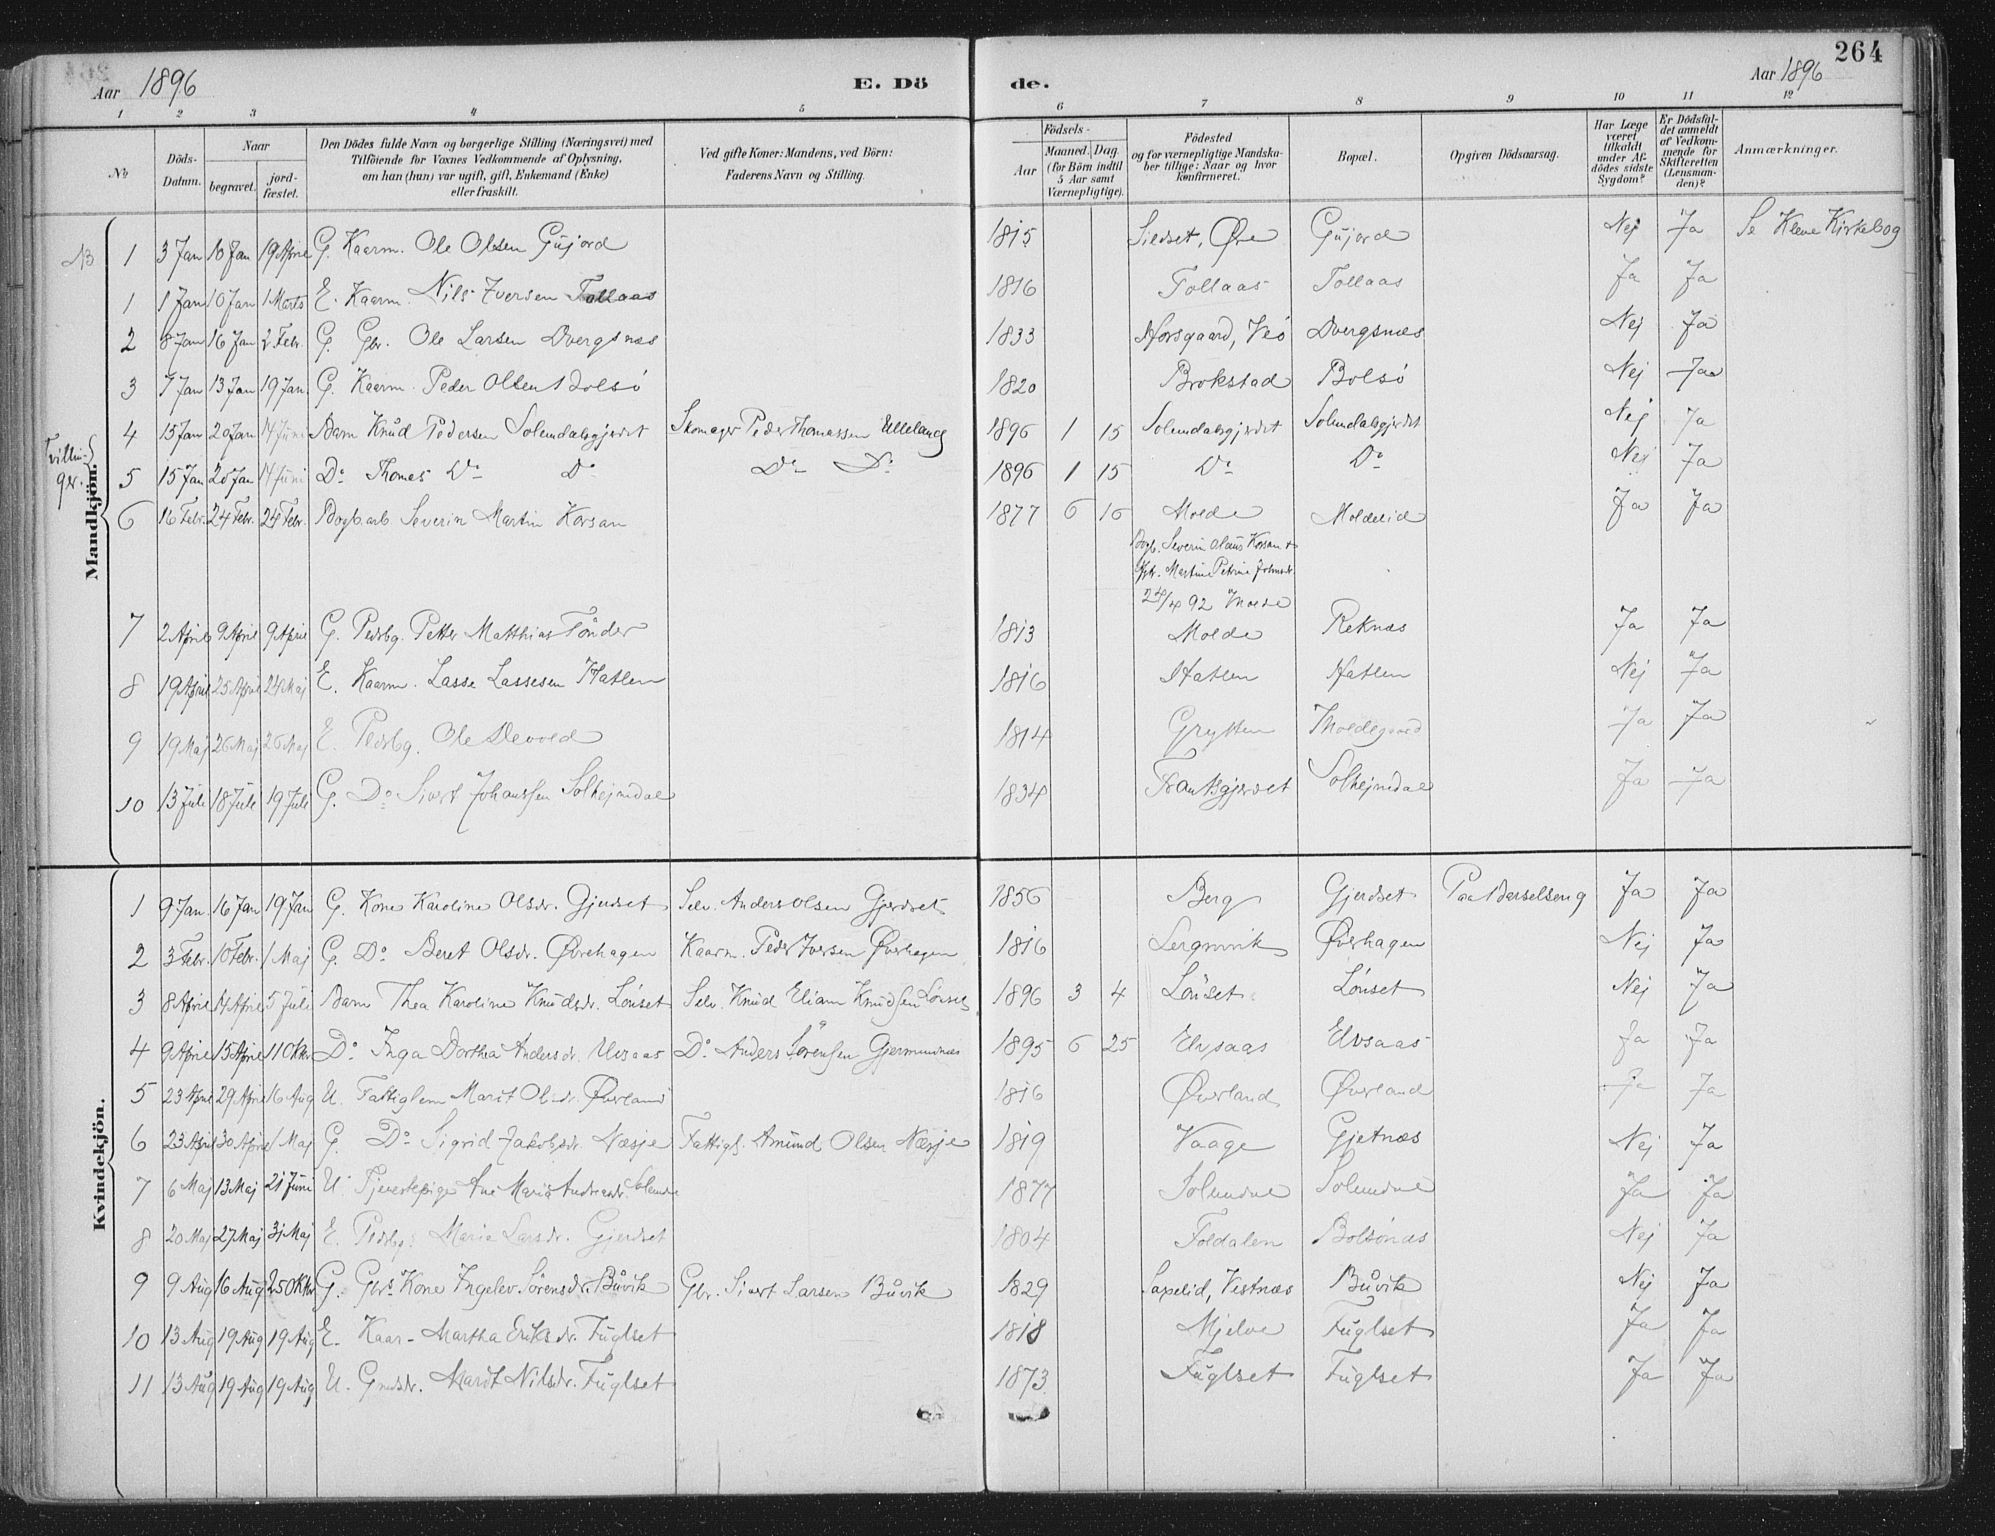 264
Aar 1896 E. Dö de. Aar 1896
1 2 3 4 5 6 7 8 9 10 11 12
№ Döds-Datum. Naar begravet. jord-fæstet. Den Dödes fulde Navn og borgerlige Stilling (Næringsvei) med Tilföiende for Voxnes Vedkommende af Oplysning, om han (hun) var ugift, gift, Enkemand (Enke) eller fraskilt. Ved gifte Koner: Mandens, ved Börn: Faderens Navn og Stilling. Födsels- Aar Maaned. Dag. (for Börn indtil 5 Aar samt Værnepligtige). Födested og for værnepligtige Mandskaber tillige: Naar og hvor konfirmeret. Bopæl. Opgiven Dödsaarsag. Har Læge været tilkaldt under Afdödes sidste Sygdom? Er Dödsfaldet anmeldt af Vedkommende for Skifteretten (Lensmanden)? Anmærkninger.
Mandkjön.
NB 1 3 Jan 10 Jan 19 April G. Kaarm. Ole Olsen Gujord 1815 Sildset, Øre Gujord Nej Ja Se Kleve Kirkebog
1 1 Jan 10 Jan 1 Marts E. Kaarm. Nils Iversen Tollaas 1816 Tollaas Tollaas Ja Ja
2 8 Jan 16 Jan 2 Febr. G. Gbr. Ole Larsen Dvergsnæs 1833 Horsgaard, Veö Dvergsnæs Nej Ja
3 7 Jan 13 Jan 19 Jan G. Kaarm. Peder Olsen Bolsö 1820 Brokstad Bolsö Nej Ja
Tvillinger. 4 15 Jan 20 Jan 14 Juni Barn Knud Pedersen Solemdalsgjerdet Skomager Peder Thomassen Elleland 1896 1 15 Solemdalsgjerdet Solemdalsgjerdet Nej Ja
5 15 Jan 20 Jan 14 Juni Do Thomas Do Do Do Do 1896 1 15 Do Do Nej Ja
6 16 Febr. 24 Febr. 24 Febr. Bogb.arb. Severin Martin Korsan 1877 6 16 Molde Moldelid Ja Ja
Bogb. Severin Olaus Korsan &
Martine Petrine Johnsdr.
24/4 92 Molde
7 2 April 9 April 9 April G. Pedsbg. Petter Matthias Tönder 1813 Molde Reknæs Ja Ja
8 19 April 25 April 24 Maj E. Kaarm. Lasse Lassesen Hatlen 1816 Hatlen Hatlen Nej Ja
9 19 Maj 26 Maj 26 Maj E. Pedsbg. Ole Devold 1814 Grytten Moldegaard Ja Ja
10 13 Juli 18 Juli 19 Juli G. Do Sivert Johanssen Solhejmdal 1834 Frantsgjerdet Solhejmdal Ja Ja
Kvindekjön.
1 9 Jan. 16 Jan 19 Jan G. Kone Karoline Olsdr. Gjerdset Selv. Anders Olsen Gjerdset 1856 Berg Gjerdset Paa Barselseng Ja Ja
2 3 Febr. 10 Febr. 1 Maj G. Do Beret Olsdr. Øverhagen Kaarm. Peder Iversen Øverhagen 1816 Lergrovik Øverhagen Nej Ja
3 8 April 14 April 5 Juli Barn Thea Karoline Knudsdr. Lönset Selv. Knud Eliam Knudsen Lönset 1896 3 4 Lönset Lönset Nej Ja
4 9 April 15 April 11 Oktbr. Do Inga Dorthea Andersdr. Elvsaas Do Anders Sörensen Gjermundnæs 1895 6 25 Elvsaas Elvsaas Ja Ja
5 23 April 29 April 16 Aug U. Fattiglem Marit Olsdr. Øverland 1816 Øverland Øverland Ja Ja
6 23 April 30 April 1 Maj G. Do Sigrid Jakobsdr. Næsje Fattigl. Amund Olsen Næsje 1819 Vaage Gjetnæs Nej Ja
7 6 Maj 13 Maj 21 Juni U. Tjenestepige Ane Maria Andreasdr. Solemdal 1877 Solemdal Solemdal Ja Ja
8 20 Maj 27 Maj 31 Maj E. Pedsbg. Maria Larsdr. Gjerdset 1804 Foldalen Bolsönæs Nej Ja
9 9 Aug 16 Aug 25 Oktbr G. Gbrs Kone Ingelev Sörensdr. Buvik Gbr. Sivert Larsen Buvik 1829 Saxelid, Vestnæs Buvik Nej Ja
10 13 Aug 19 Aug 19 Aug E. Kaar- Martha Eriksdr. Fuglset 1818 Mjelve Fuglset Ja Ja
11 13 Aug 19 Aug 19 Aug. U. Gmdsdr. Marit Nilsdr. Fuglset 1873 Fuglset Fuglset Ja Ja